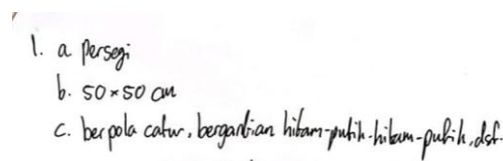 1. a persegi
b. 50 × 50 cm
c. berpola catur, bergantian hitam-putih-hitam-putih, dst.